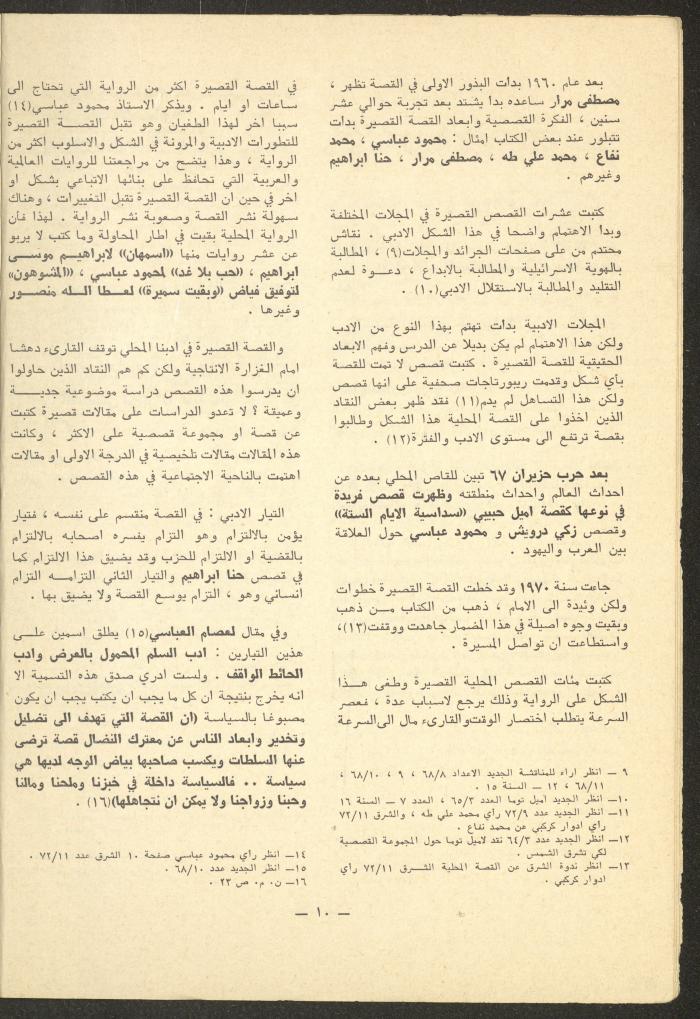 بعد عام ١٩٦٠ بدات البذور الاولى في القصة تظهر ،
مصطفى مرار ساعده بدا يشتد بعد تجربة حوالي عشر
سنين ، الفكرة القصصية وابعاد القصة القصيرة بدات
تتبلور عند بعض الكتاب امثال : محمود عباسي ، محمد
نفاع ، محمد علي طه ، مصطفى مرار ، حنا ابراهيم
وغيرهم .
كتبت عشرات القصص القصيرة في المجلات المختلفة
وبدا الاهتمام واضحا في هذا الشكل الادبي . نقاش
محتدم من على صفحات الجرائد والمجلات(٩) ، المطالبة
بالهوية الاسرائيلية والمطالبة بالابداع ، دعوة لعدم
التقليد والمطالبة بالاستقلال الادبي(١٠) .
المجلات الادبية بدات تهتم بهذا النوع من الادب
ولكن هذا الاهتمام لم يكن بديلا عن الدرس وفهم الابعاد
الحقيقية للقصة القصيرة . كتبت قصص لا تمت للقصة
بأي شكل وقدمت ريبورتاجات صحفية على انها قصص
ولكن هذا التساهل لم يدم(١١) فقد ظهر بعض النقاد
الذين اخذوا على القصة المحلية هذا الشكل وطالبوا
بقصة ترتفع الى مستوى الادب والفترة(١٢) .
بعد حرب حزيران ٦٧ تبين للقاص المحلي بعده عن
احداث العالم واحداث منطقته وظهرت قصص فريدة
في نوعها كقصة اميل حبيبي «سداسية الايام الستة»
وقصص زكي درويش و محمود عباسي حول العلاقة
بين العرب واليهود .
جاءت سنة ١٩٧٠ وقد خطت القصة القصيرة خطوات
ولكن وئيدة الى الامام ، ذهب من الكتاب من ذهب
وبقيت وجوه اصيلة في هذا المضمار جاهدت ووقفت(١٣)،
واستطاعت ان تواصل المسيرة .
كتبت مئات القصص المحلية القصيرة وطغى هذا
الشكل على الرواية وذلك يرجع لاسباب عدة ، فعصر
السرعة يتطلب اختصار الوقت والقارىء مال الى السرعة
٩ — انظر اراء للمناقشة الجديد الاعداد ٦٨/٨ ، ٩ ، ٦٨/١٠ ،
٦٨/١١ ، ١٢ — السنة ١٥ .
١٠— انظر الجديد اميل توما العدد ٦٥/٣ ، العدد ٧ — السنة ١٦
١١— انظر الجديد عدد ٧٢/٩ رأي محمد علي طه ، والشرق ٧٢/١١
رأي ادوار كركبي عن محمد نفاع .
١٢— انظر الجديد عدد ٦٤/٣ نقد لاميل توما حول المجموعة القصصية
لكي تشرق الشمس .
١٣— انظر ندوة الشرق عن القصة المحلية الشرق ٧٢/١١ رأي
ادوار كركبي .
في القصة القصيرة اكثر من الرواية التي تحتاج الى
ساعات او ايام . ويذكر الاستاذ محمود عباسي(١٤)
سببا اخر لهذا الطغيان وهو تقبل القصة القصيرة
للتطورات الادبية والمرونة في الشكل والاسلوب اكثر من
الرواية ، وهذا يتضح من مراجعتنا للروايات العالمية
والعربية التي تحافظ على بنائها الاتباعي بشكل او
اخر في حين ان القصة القصيرة تقبل التغييرات ، وهناك
سهولة نشر القصة وصعوبة نشر الرواية . لهذا فان
الرواية المحلية بقيت في اطار المحاولة وما كتب لا يربو
عن عشر روايات منها «اسمهان» لابراهيم موسى
ابراهيم ، «حب بلا غد» لمحمود عباسي ، «المشوهون»
لتوفيق فياض «وبقيت سميرة» لعطا الله منصور
وغيرها .
والقصة القصيرة في ادبنا المحلي توقف القارىء دهشا
امام الغزارة الانتاجية ولكن كم هم النقاد الذين حاولوا
ان يدرسوا هذه القصص دراسة موضوعية جدية
وعميقة ؟ لا تعدو الدراسات على مقالات قصيرة كتبت
عن قصة او مجموعة قصصية على الاكثر ، وكانت
هذه المقالات مقالات تلخيصية في الدرجة الاولى او مقالات
اهتمت بالناحية الاجتماعية في هذه القصص .
التيار الادبي : في القصة منقسم على نفسه ، فتيار
يؤمن بالالتزام وهو التزام يفسره اصحابه بالالتزام
بالقضية او الالتزام للحزب وقد يضيق هذا الالتزام كما
في قصص حنا ابراهيم والتيار الثاني التزامه التزام
انساني وهو ، التزام يوسع القصة ولا يضيق بها .
وفي مقال لعصام العباسي(١٥) يطلق اسمين على
هذين التيارين : ادب السلم المحمول بالعرض وادب
الحائط الواقف . ولست ادري صدق هذه التسمية الا
انه يخرج بنتيجة ان كل ما يجب ان يكتب يجب ان يكون
مصبوغا بالسياسة (ان القصة التي تهدف الى تضليل
وتخدير وابعاد الناس عن معترك النضال قصة ترضى
عنها السلطات ويكسب صاحبها بياض الوجه لديها هي
سياسة .. فالسياسة داخلة في خبزنا وملحنا ومالنا
وحبنا وزواجنا ولا يمكن ان نتجاهلها)(١٦) .
١٤— انظر رأي محمود عباسي صفحة ١٠ الشرق عدد ٧٢/١١ .
١٥— انظر الجديد عدد ٦٨/١٠ .
١٦— ن. م. ص ٢٣ .
— ١٠ —